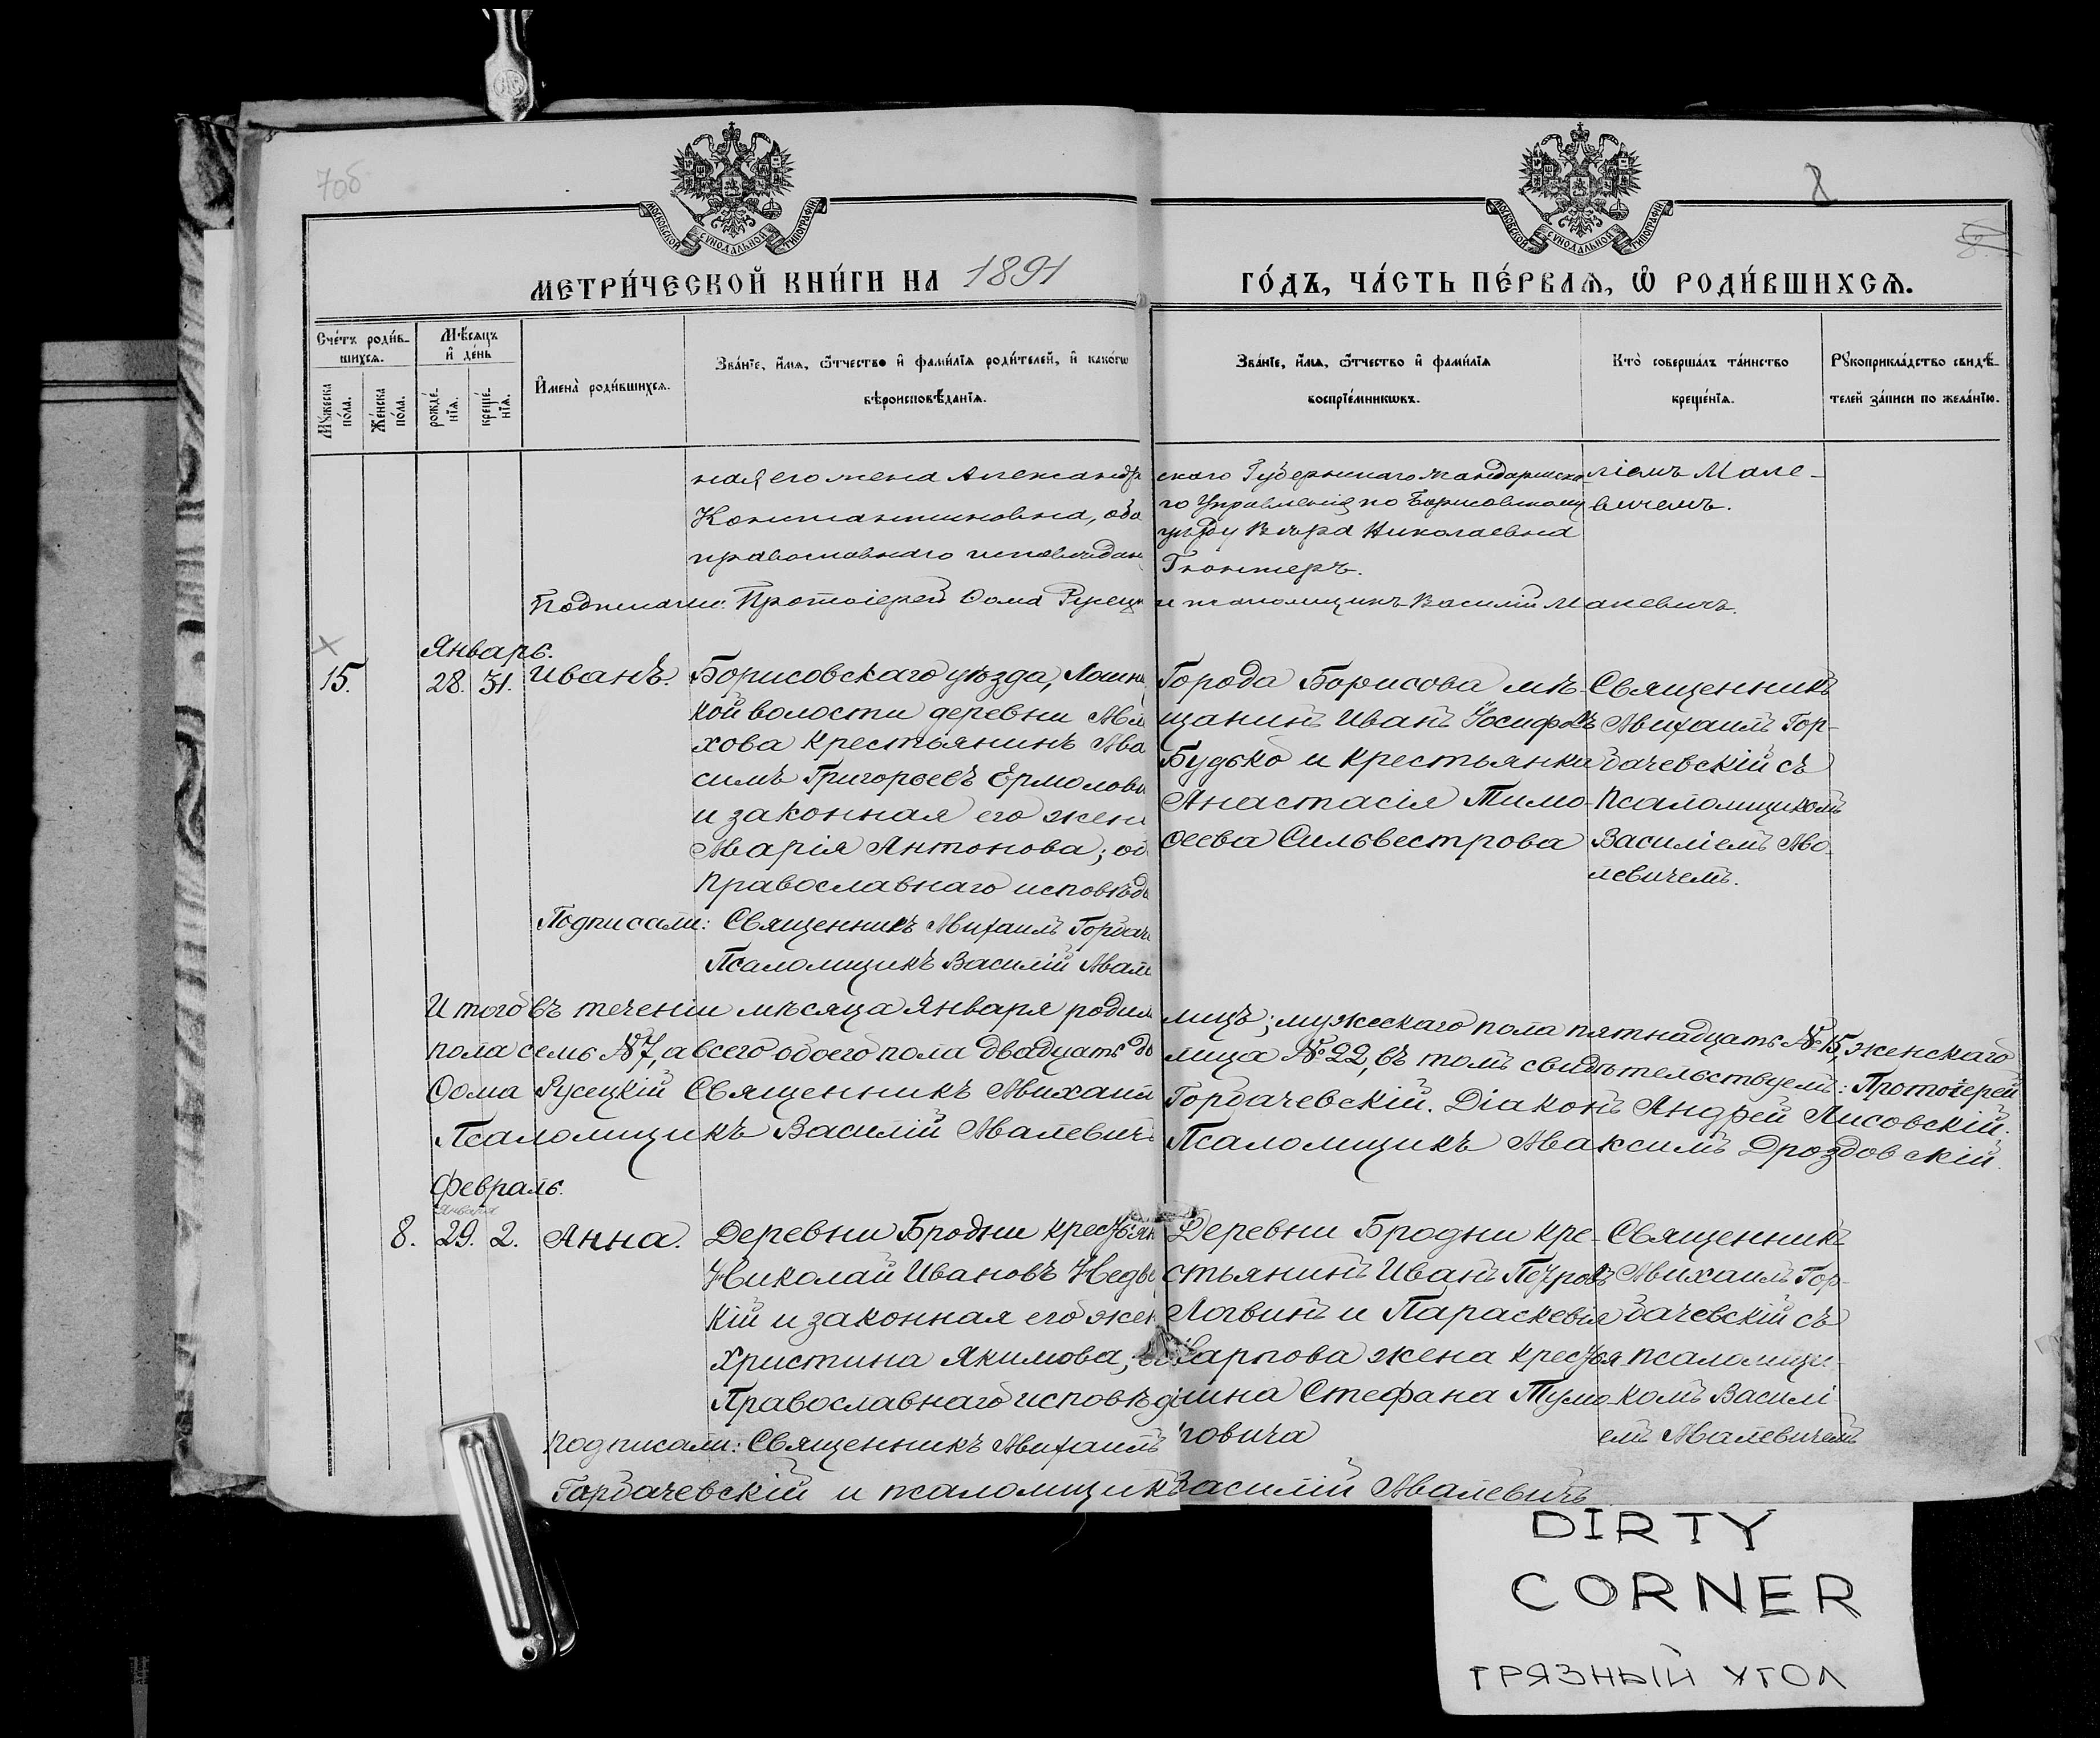 70б
8
МОСКОВСКОЙ СѴНОДАЛЬНОЙ ТИПОГРАФІИ
МОСКОВСКОЙ СѴНОДАЛЬНОЙ ТИПОГРАФІИ
МЕТРИ́ЧЕСКОЙ КНИ́ГИ НА 1891
ГО́ДЪ, ЧА́СТЬ ПЕ́РВАѦ, Ѡ҆ РОДИ́ВШИХСѦ.
Сче́тъ роди́в-
шихсѧ.
Мꙋ́жеска по́ла.
Же́нска по́ла.
Мѣ́сѧцъ и҆ де́нь
рожде́-нїѧ.
креще́-нїѧ.
И҆мена̀ роди́вшихсѧ.
Зва́нїе, и҆́мѧ, ѻ҆́тчество и҆ фами́лїѧ роди́телей, и҆ како́гѡ
вѣроисповѣ́данїѧ.
Зва́нїе, и҆́мѧ, ѻ҆́тчество и҆ фами́лїѧ
воспрїе́мникѡвъ.
Кто̀ соверша́лъ та́инство
креще́нїѧ.
Рꙋкоприкла́дство свидѣ́-
телей за́писи по жела́нїю.
ная его жена Александр
Константиновна, оба
православнаго исповѣдан
скаго Губернскаго жандармска-
го Управленія по Борисовскому
уѣзду Вѣра Николаевна
Гюнтеръ.
ліемъ Мале-
вичемъ.
Подписали: Протоіерей Ѳома Русецк и псаломщикъ Василій Малевичъ.
Январь.
15. 28. 31. Иванъ.
Борисовскаго уѣзда, Лошни
кой волости деревни Мл
хова крестьянинъ Ма
симъ Григорьевъ Ермолови
и законная его жен
Марія Антонова; об
Православнаго исповѣд
Города Борисова мѣ-
щанинъ Иванъ Іосифовъ
Будько и крестьянка
Анастасія Тимо-
ѳеева Сильвестрова
Священникъ
Михаилъ Гор-
бачевскій съ
Псаломщикомъ
Василіемъ Ма-
левичемъ.
Подписали: Священникъ Михаилъ Горбаче
Псаломщикъ Василій Мале
Итого въ теченіи мѣсяца Января родил
лицъ; мужескаго пола пятнадцать №15, женскаго
пола семь №7, а всего обоего пола двадцать дв
лица №22, въ томъ свидѣтельствуемъ: Протоіерей
Ѳома Русецкій Священникъ Михаил
Горбачевскій. Діаконъ Андрей Лисовскій.
Псаломщикъ Василій Малевичъ
Псаломщикъ Максимъ Дроздовскій.
Февраль.
Января
8. 29. 2. Анна.
Деревни Бродни крестьян
Николай Ивановъ Недв
кій и законная его жен
Христина Якимова; об
Православнаго исповѣд
Деревни Бродни кре-
стьянинъ Иванъ Петровъ
Логвинъ и Параскевія
Карпова жена крестья
нина Стефана Тумо-
повича
Священникъ
Михаилъ Гор-
бачевскій съ
псаломщи-
комъ Василі-
емъ Малевичемъ
Подписали: Священникъ Михаилъ
Горбачевскій и псаломщикъ Василій Малевичъ
DIRTY
CORNER
ГРЯЗНЫЙ УГОЛ